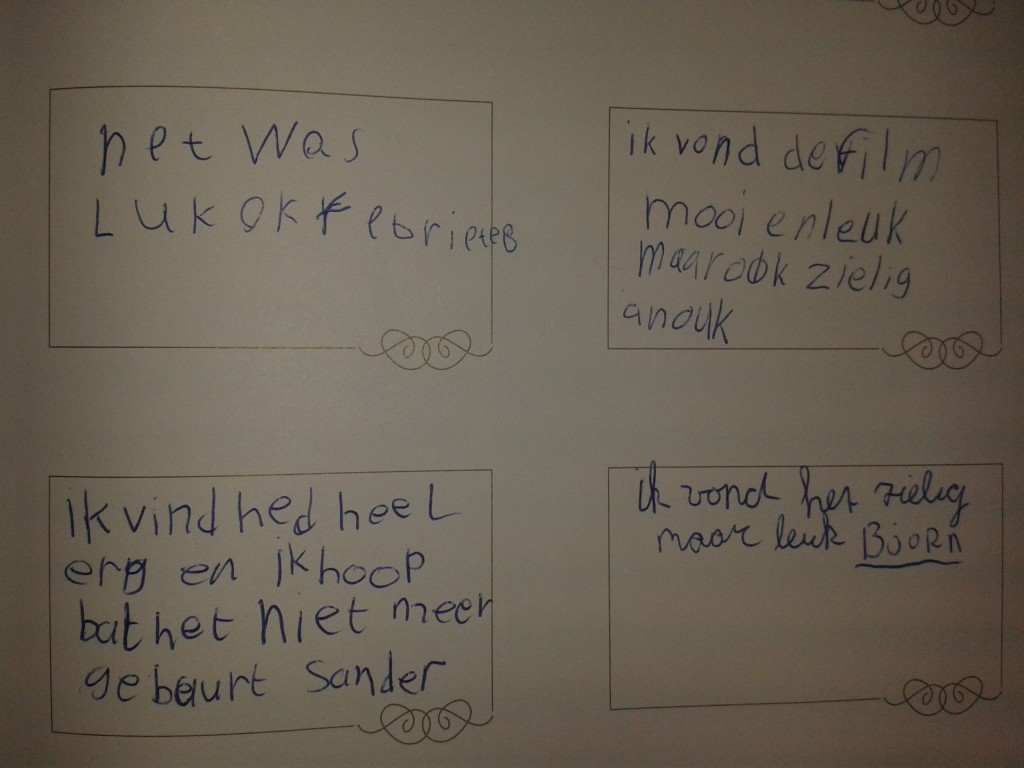 het was
LUK OK
ik vond de film
mooi en leuk
maar ook zielig
anouk
ik vind hed heel
erg en ik hoop
bat het niet meer
gebeurt Sander
ik vond het zielig
maar leuk Bjorn